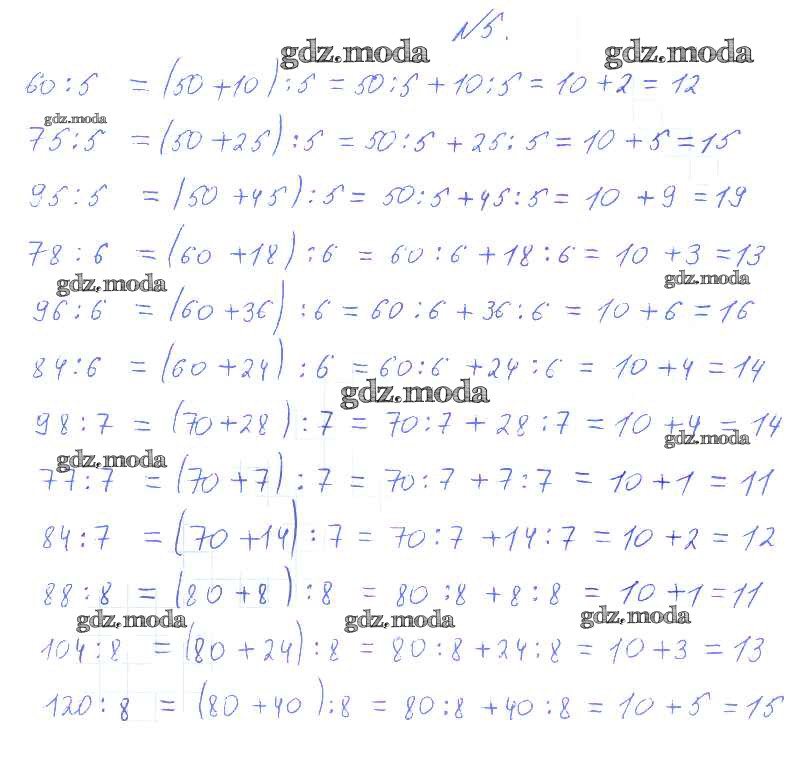 №5.
gdz.moda gdz.moda
60:5 = (50+10):5 = 50:5+10:5 = 10+2 = 12
gdz.moda
75:5 = (50+25):5 = 50:5+25:5 = 10+5 = 15
95:5 = (50+45):5 = 50:5+45:5 = 10+9 = 19
78:6 = (60+18):6 = 60:6+18:6 = 10+3 = 13
gdz.moda gdz.moda
96:6 = (60+36):6 = 60:6+36:6 = 10+6 = 16
84:6 = (60+24):6 = 60:6+24:6 = 10+4 = 14
gdz.moda
98:7 = (70+28):7 = 70:7+28:7 = 10+4 = 14
gdz.moda gdz.moda
77:7 = (70+7):7 = 70:7+7:7 = 10+1 = 11
84:7 = (70+14):7 = 70:7+14:7 = 10+2 = 12
88:8 = (80+8):8 = 80:8+8:8 = 10+1 = 11
gdz.moda gdz.moda gdz.moda
104:8 = (80+24):8 = 80:8+24:8 = 10+3 = 13
120:8 = (80+40):8 = 80:8+40:8 = 10+5 = 15